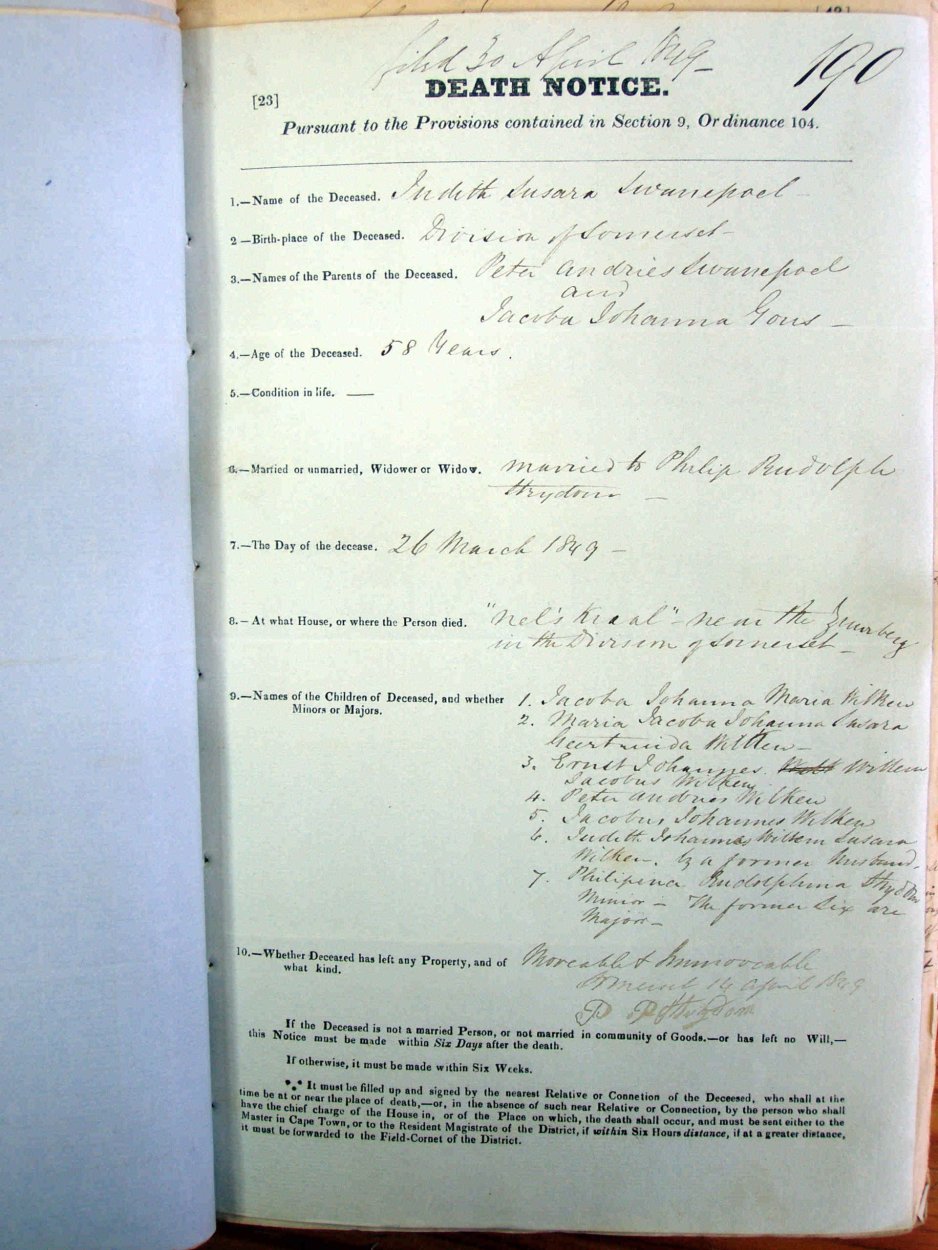 filed 30 April 1849
190
[23]
DEATH NOTICE.
Pursuant to the Provisions contained in Section 9, Ordinance 104.
1.—Name of the Deceased. Judith Susara Swanepoel
2—Birth-place of the Deceased. Division of Somerset—
3.—Names of the Parents of the Deceased. Peter Andries Swanepoel
and
Jacoba Johanna Gous —
4.—Age of the Deceased. 58 Years.
5.—Condition in life. —
6.—Married or unmarried, Widower or Widow. married to Philip Rudolph
Strydom —
7.—The Day of the decease. 26 March 1849 —
8.—At what House, or where the Person died. "Nel's Kraal" - near the Zuurberg
in the Division of Somerset —
9.—Names of the Children of Deceased, and whether
Minors or Majors.
1. Jacoba Johanna Maria Wilken
2. Maria Jacoba Johanna Susara
Geertruida Wilken —
3. Ernst Johannes Willem
Jacobus Wilken
4. Peter Andries Wilken
5. Jacobus Johannes Wilken
6. Judith Johannes Willem Susara
Wilken. by a former husband.
7. Philipina Rudolphina Strydom
Minor — The former Six are
Majors —
10.—Whether Deceased has left any Property, and of
what kind.
Moveable & Immoveable
Somerset 14 April 1849
P Strydom
If the Deceased is not a married Person, or not married in community of Goods.—or has left no Will,—
this Notice must be made within Six Days after the death.
If otherwise, it must be made within Six Weeks.
*** It must be filled up and signed by the nearest Relative or Connetion of the Deceesed, who shall at the
time be at or near the place of death,—or, in the absence of such near Relative or Connection, by the person who shall
have the chief charge of the House in, or of the Place on which, the death shall occur, and must be sent either to the
Master in Cape Town, or to the Resident Magistrate of the District, if within Six Hours distance, if at a greater distance,
it must be forwarded to the Field-Cornet of the District.